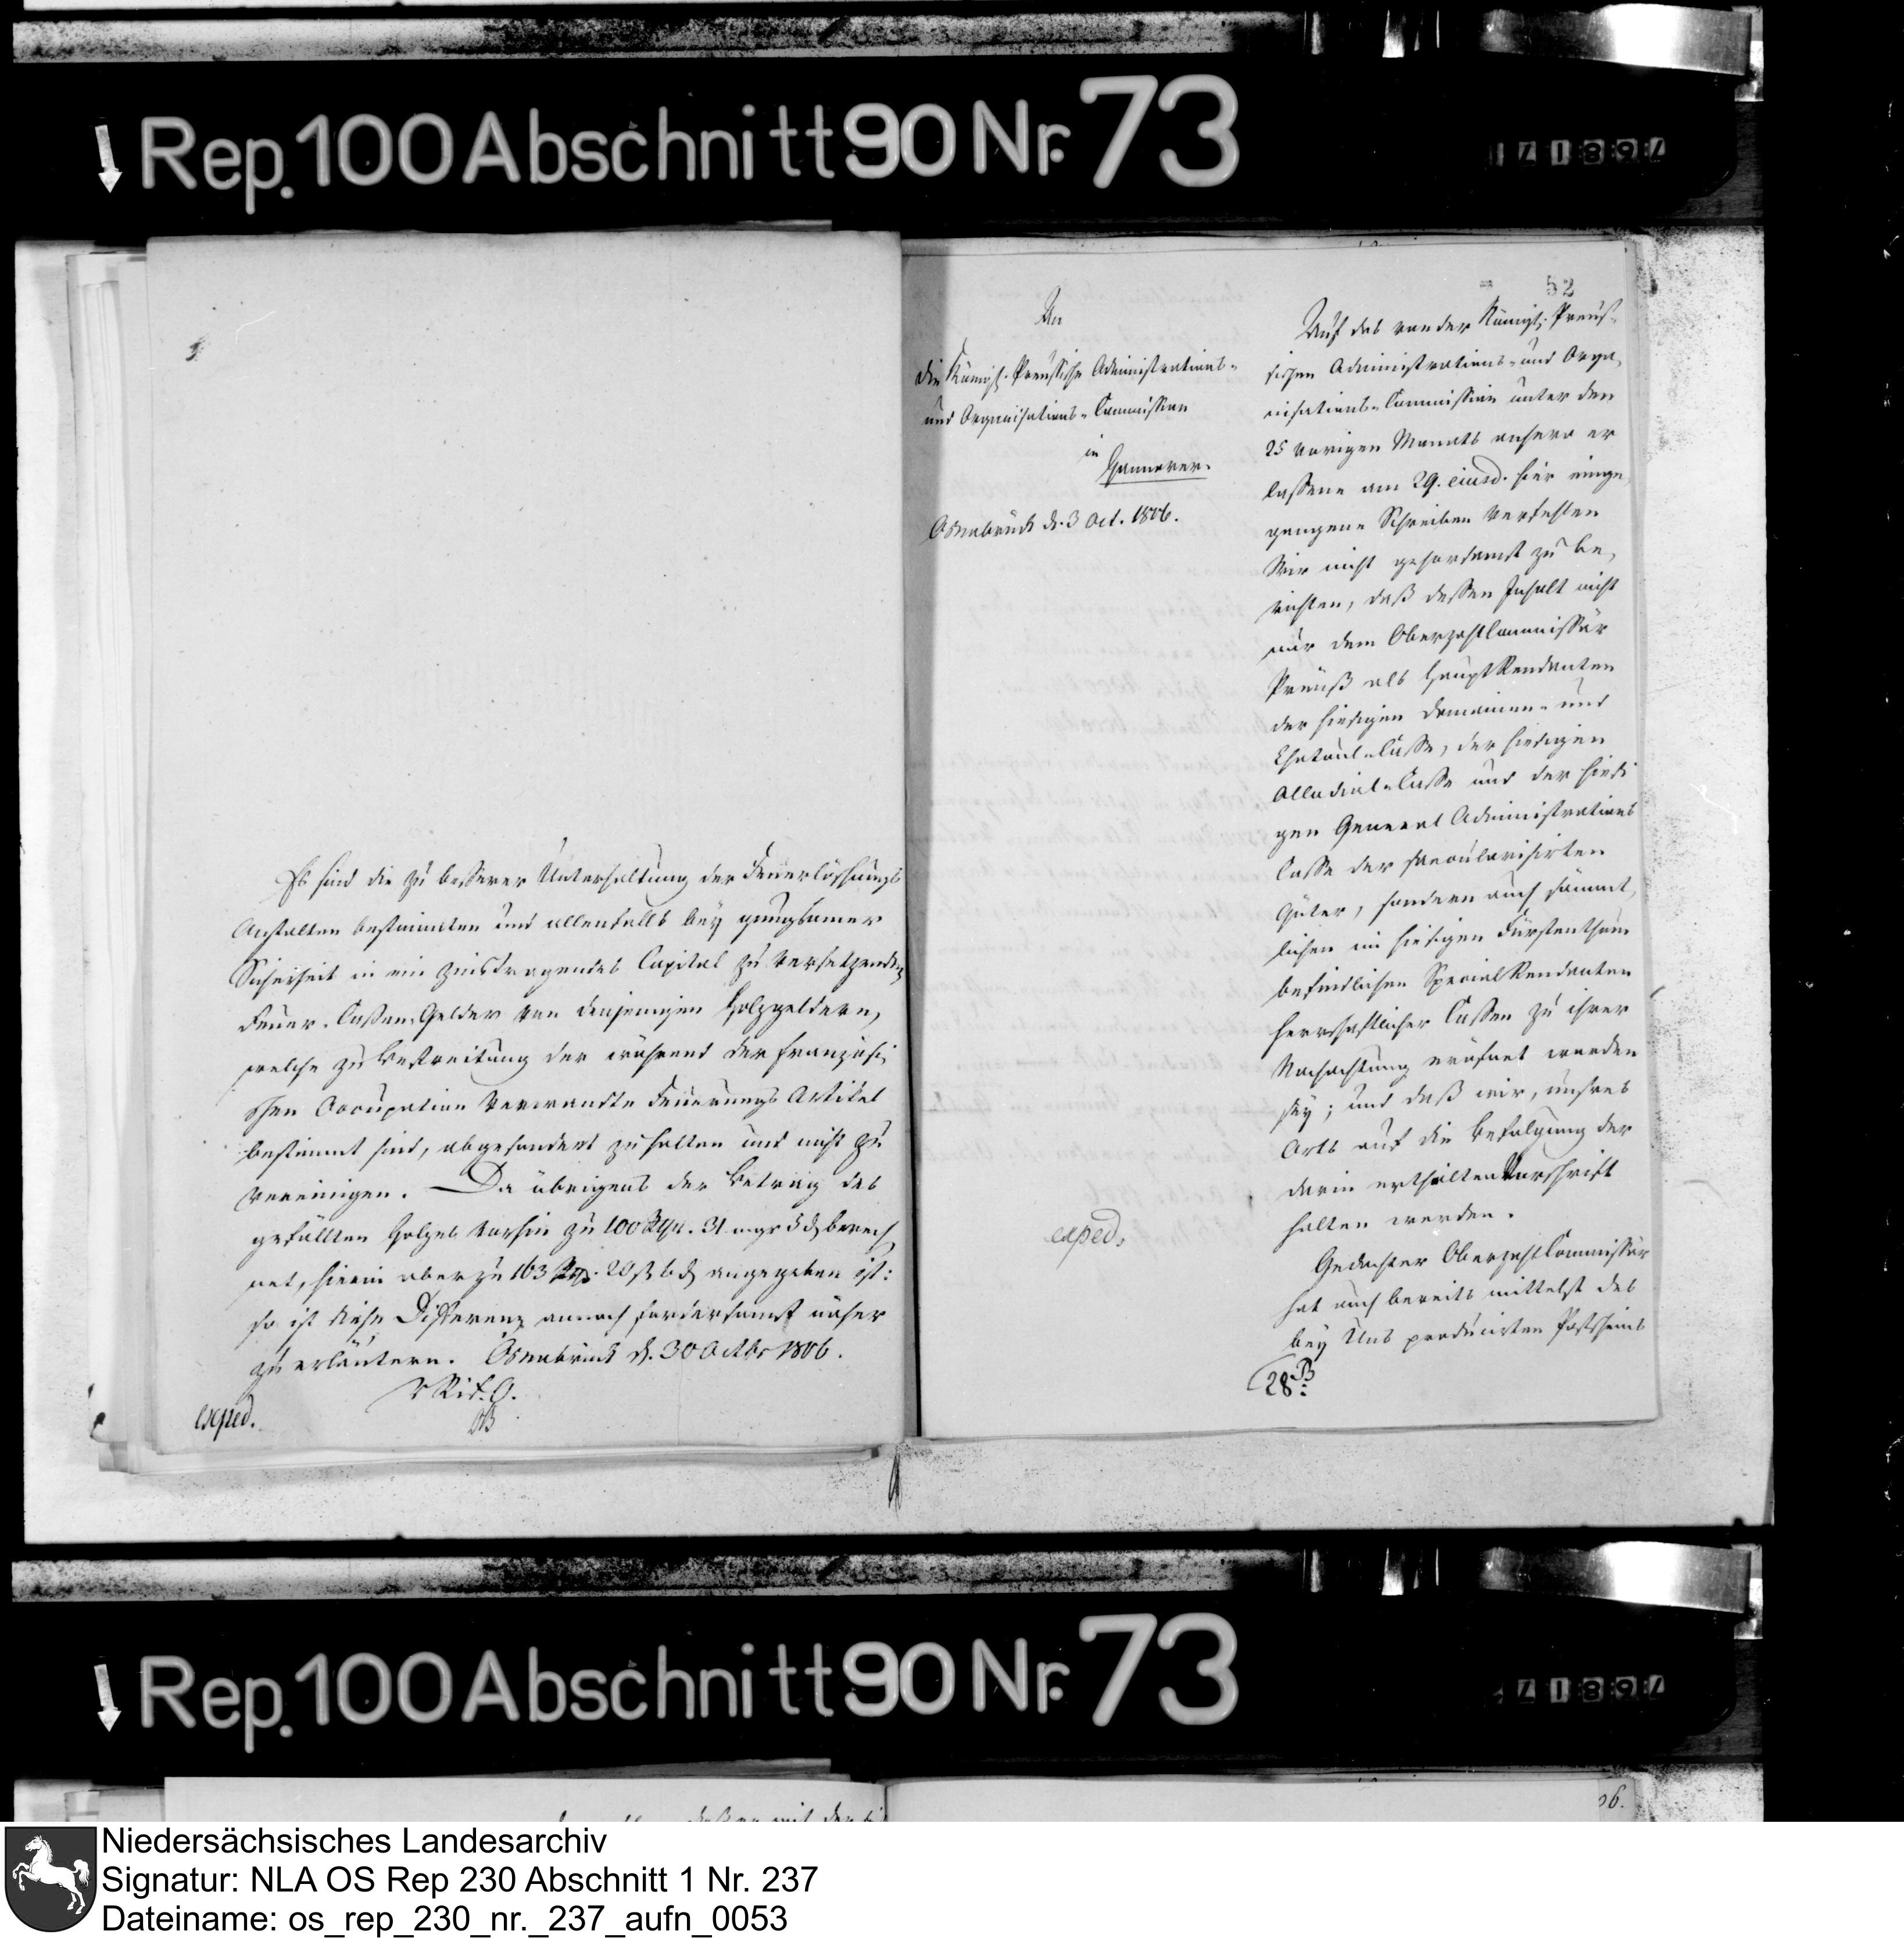 Rep. 100 Abschnitt 90 Nr. 73
Es sind die zu besserer Unterhaltung der Feuerlöschungs
Anstalten bestimmten und allenfalls bey gnugsamer
Sicherheit in ein zinstragendes Capital zu versetzenden
Feuer-Cassen-Gelder von denjenigen Holzgeldern,
welche zu Bestreitung der während der französi
schen Occupation verwandte Feuerungs Artikel
bestimmt sind, abgesondert zu halten und nicht zu
vereinigen. Da übrigens der Betrag des
gefällten Holzes vorhin zu 100 Rthlr. 31 mgr 5 d berech
net, hierin aber zu 103 Rthlr. 20 ß 6 d angegeben ist:
so ist diese Differenz annoch fordersamst näher
zu erläutern. Osnabrück d. 30 Octbr 1806.
exped.
52
An
die Königl. Preußische Administrations-
und Organisations-Commission
in
Hannover.
Osnabrück d. 3 Oct. 1806.
exped.
Auf das von der Königl. Preus-
sischen Administrations- und Orga
nisations-Commission unter den
25 vorigen Monats anhero er
lassene am 29. eiusd. hier einge
gangene Schreiben verfehlen
Wir nicht gehorsamst zu be
richten, daß dessen Inhalt nicht
nur dem Oberzahlcommissär
Preuß als Haupt Rendanten
der hiesigen Domainen- und
Chatoul-Casse, der hiesigen
Allodial-Casse und der hiesi
gen General Administrations
Casse der saecularisirten
Güter, sondern auch sämmt
lichen im hiesigen Fürstenthum
befindlichen Special Rendanten
herrschaftlicher Cassen zu ihrer
Nachachtung eröfnet worden
sey; und daß wir, unsres
Orts auf die Befolgung der
darin erthalten Vorschrift
halten werden.
Gedachter Oberzahl Commissär
hat auch bereits mittelst des
bey Uns producirten Postscheins
28
Rep. 100 Abschnitt 90 Nr. 73
Niedersächsisches Landesarchiv
Signatur: NLA OS Rep 230 Abschnitt 1 Nr. 237
Dateiname: os_rep_230_nr._237_aufn_0053